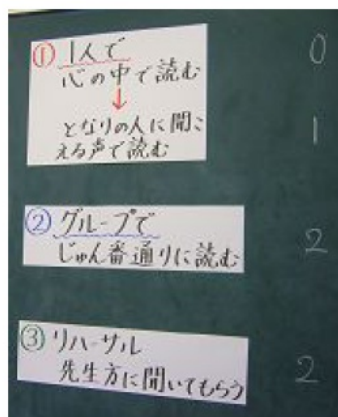 ① 1人で 0
心の中で読む
↓
となりの人に聞こ 1
える声で読む
② グループで
じゅん番通りに読む 2
③ リハーサル
先生方に聞いてもらう 2